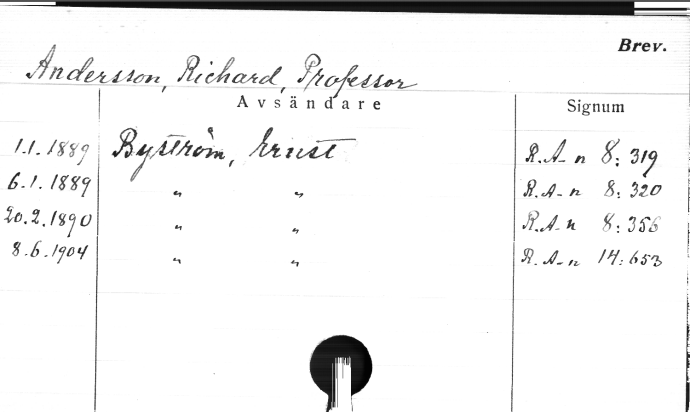 Brev.
Andersson, Richard, Professor
Avsändare Signum
1.1.1889 Byström, Ernst R.A-n 8:319
6.1.1889 " " R.A-n 8:320
20.2.1890 " " R.A-n 8:356
8.6.1904 " " R.A-n 14:653